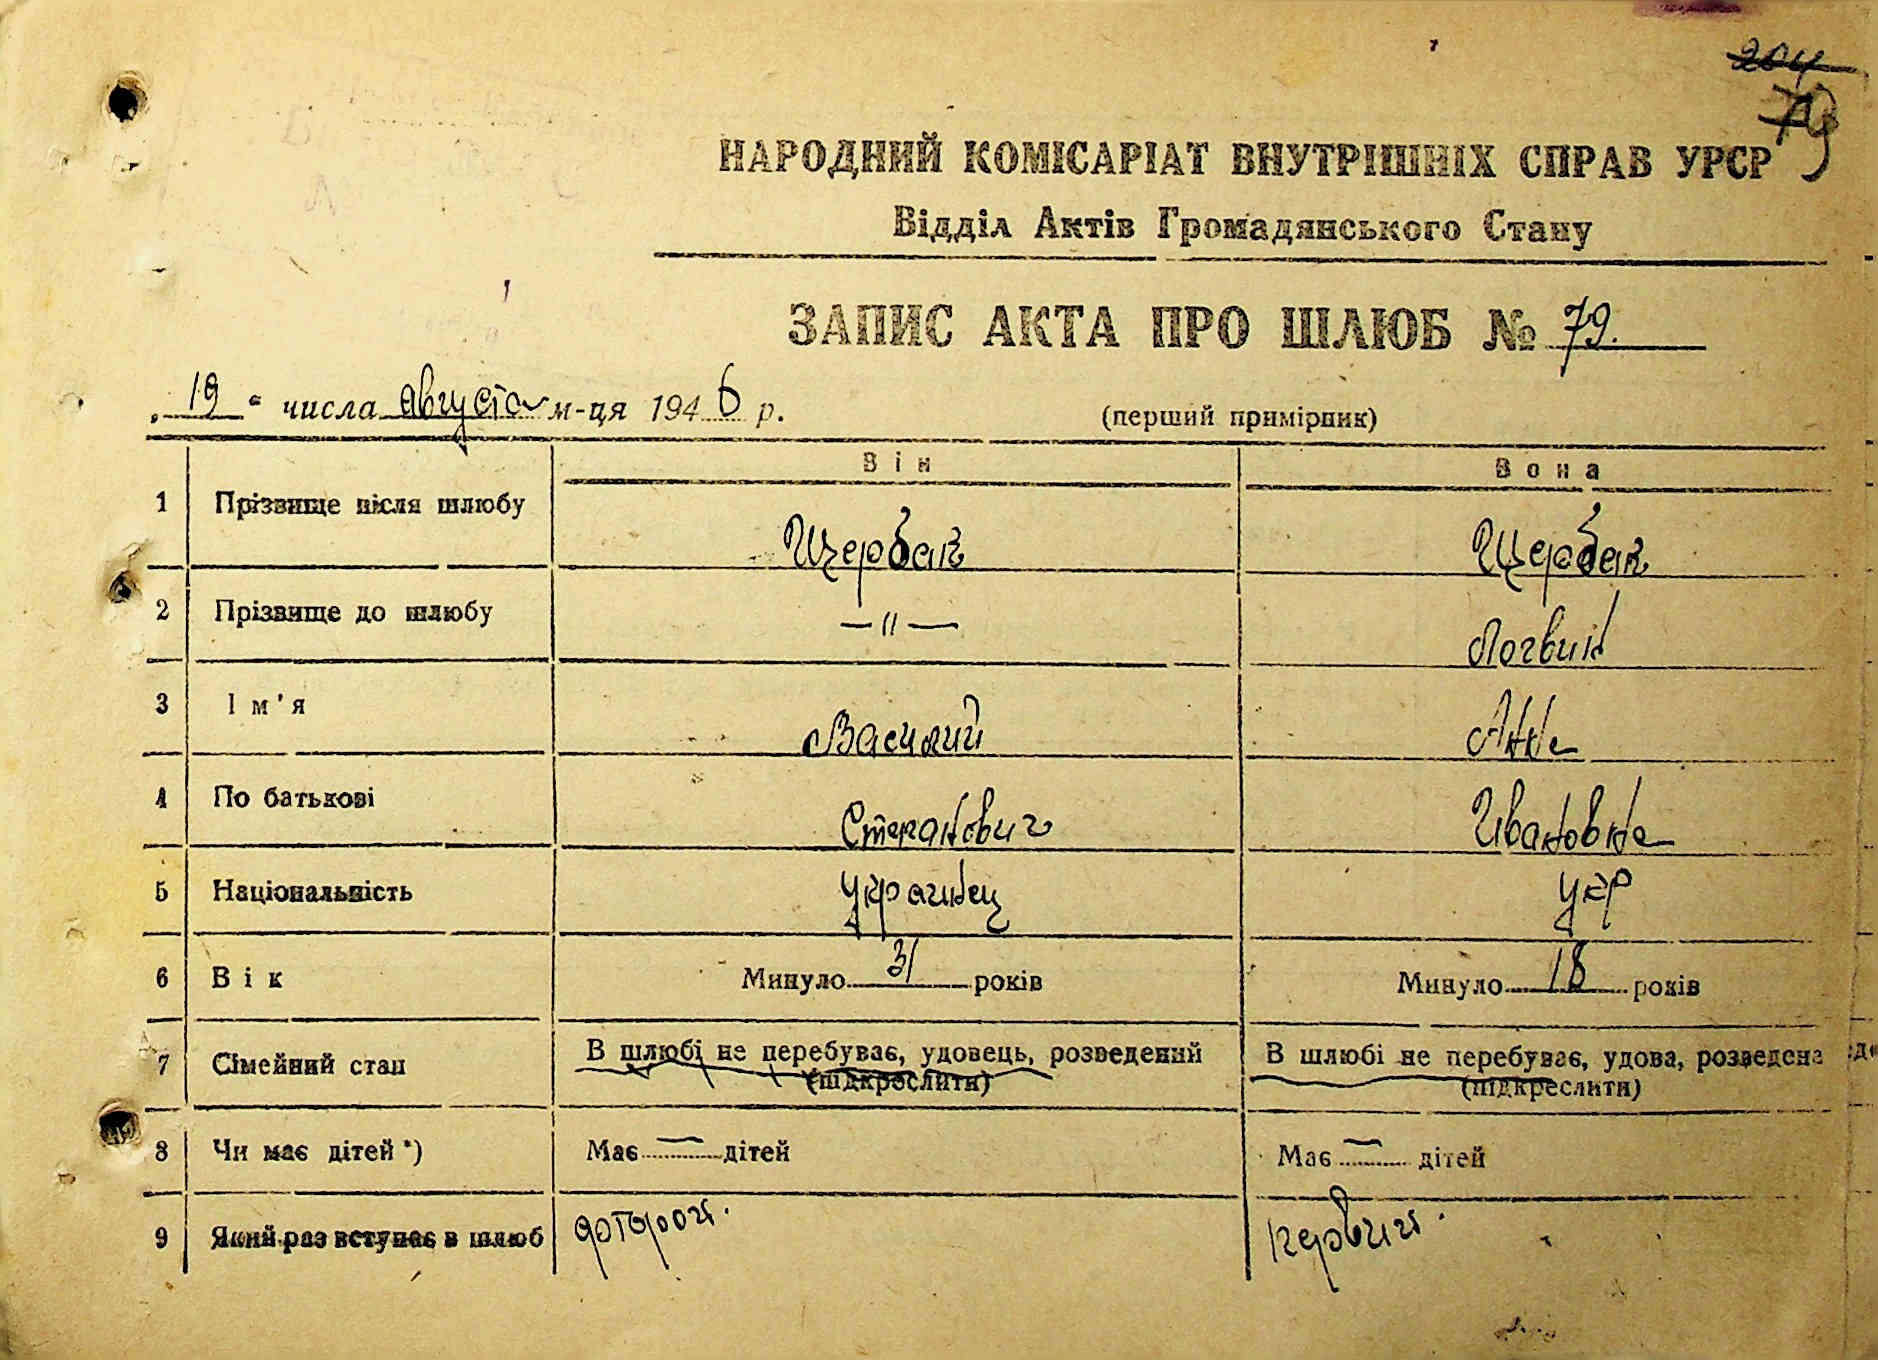 204
79
НАРОДНИЙ КОМІСАРІАТ ВНУТРІШНІХ СПРАВ УРСР
Відділ Актів Громадянського Стану
ЗАПИС АКТА ПРО ШЛЮБ № 79.
„19“ числа августа м-ця 1946 р. (перший примірник)
Він Вона
1 Прізвище після шлюбу Щербак Щербак
2 Прізвище до шлюбу —〃— Логвин
3 Ім'я Василий Анна
4 По батькові Степанович Ивановна
5 Національність Украинец Укр
6 Вік Минуло 31 років Минуло 18 років
7 Сімейний стан В шлюбі не перебуває, удовець, розведений В шлюбі не перебуває, удова, розведена
(підкреслити) (підкреслити)
8 Чи має дітей *) Має — дітей Має — дітей
9 Який раз вступає в шлюб второй. первый.